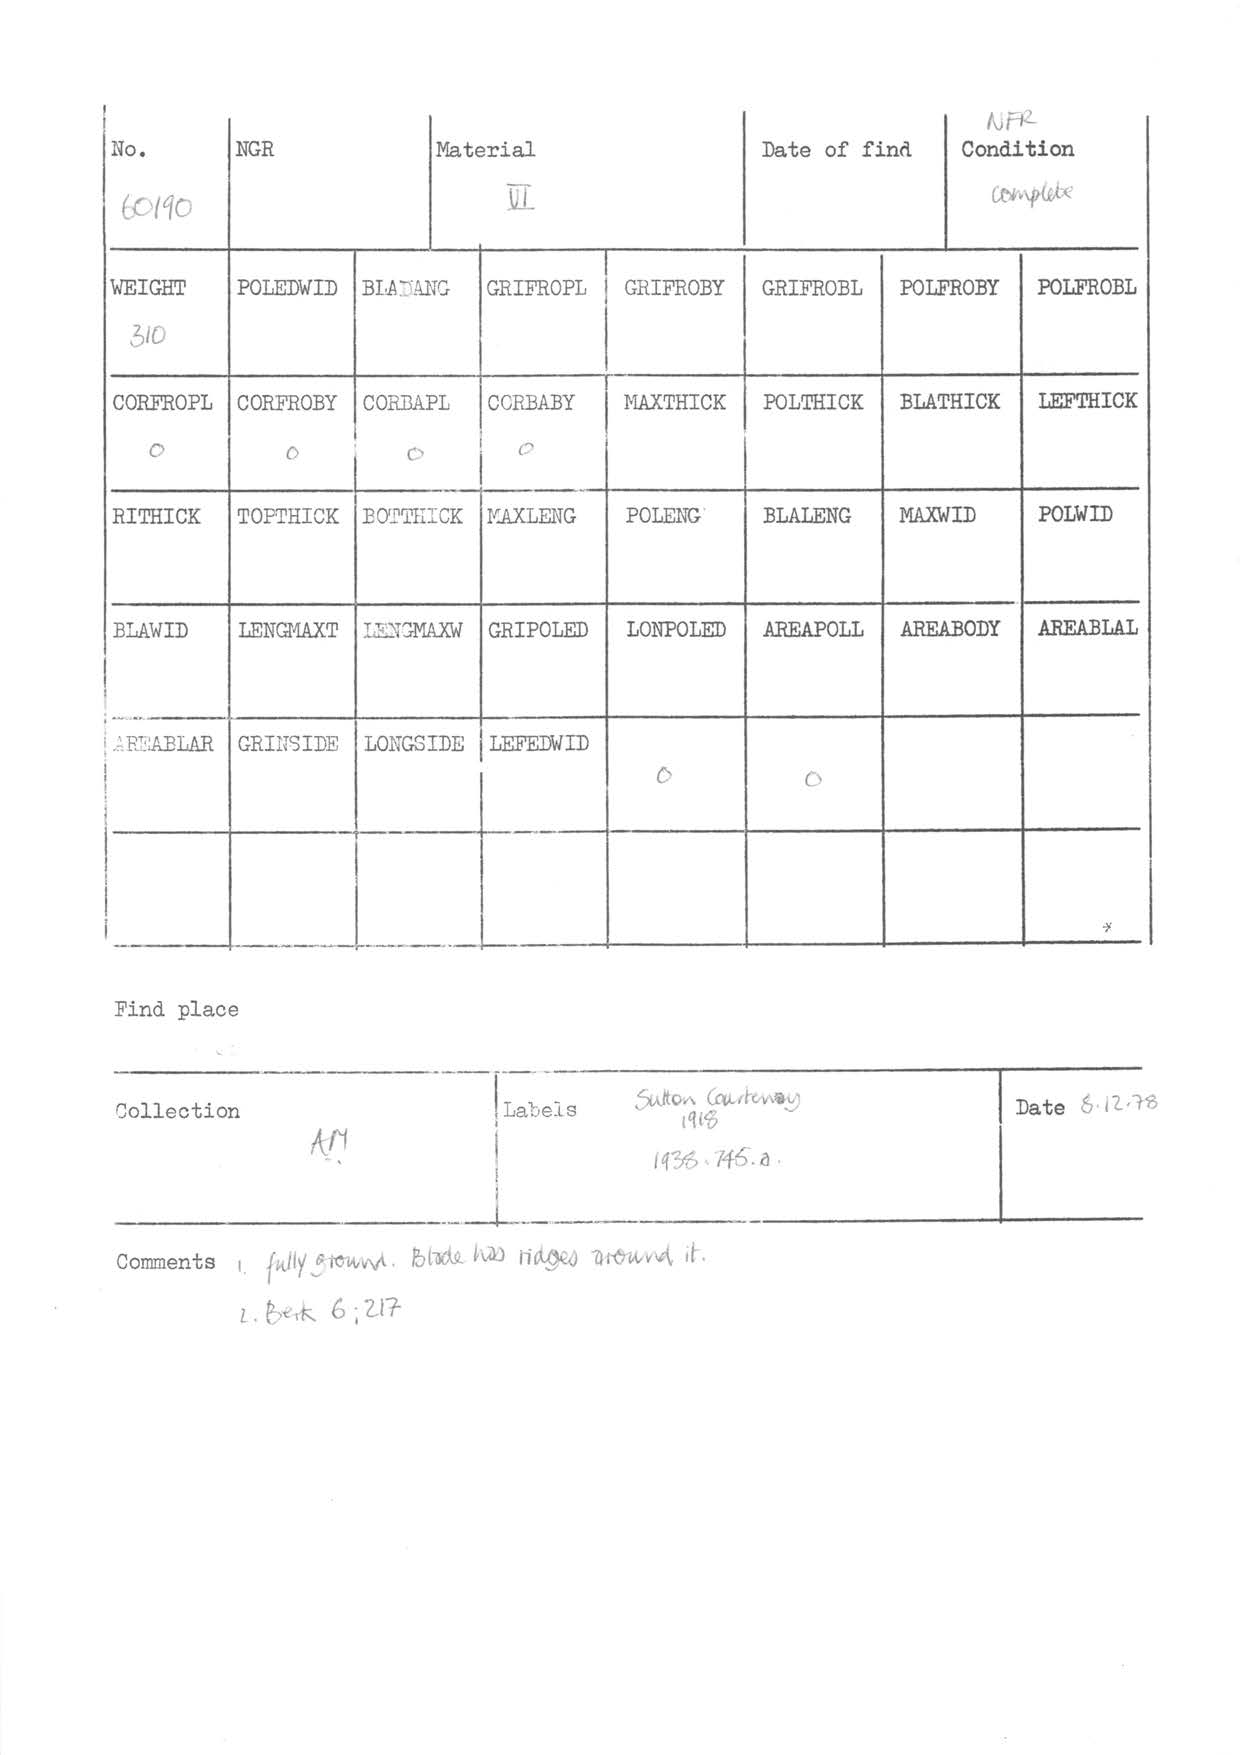 NFR
No. NGR Material Date of find Condition
60/90 VI complete
WEIGHT POLEDWID BLADANG GRIFROPL GRIFROBY GRIFROBL POLFROBY POLFROBL
310
CORFROPL CORFROBY CORBAPL CORBABY MAXTHICK POLTHICK BLATHICK LEFTHICK
0 0 0 0
RITHICK TOPTHICK BOTTHICK MAXLENG POLENG BLALENG MAXWID POLWID
BLAWID LENGMAXT LENGMAXW GRIPOLED LONPOLED AREAPOLL AREABODY AREABLAL
AREABLAR GRINSIDE LONGSIDE LEFEDWID
0 0
*
Find place
Collection Labels Sutton Courtenay Date 8.12.78
1918
AM 1938.745.a.
Comments 1. fully ground. Blade has ridges around it.
2. Berk 6;217